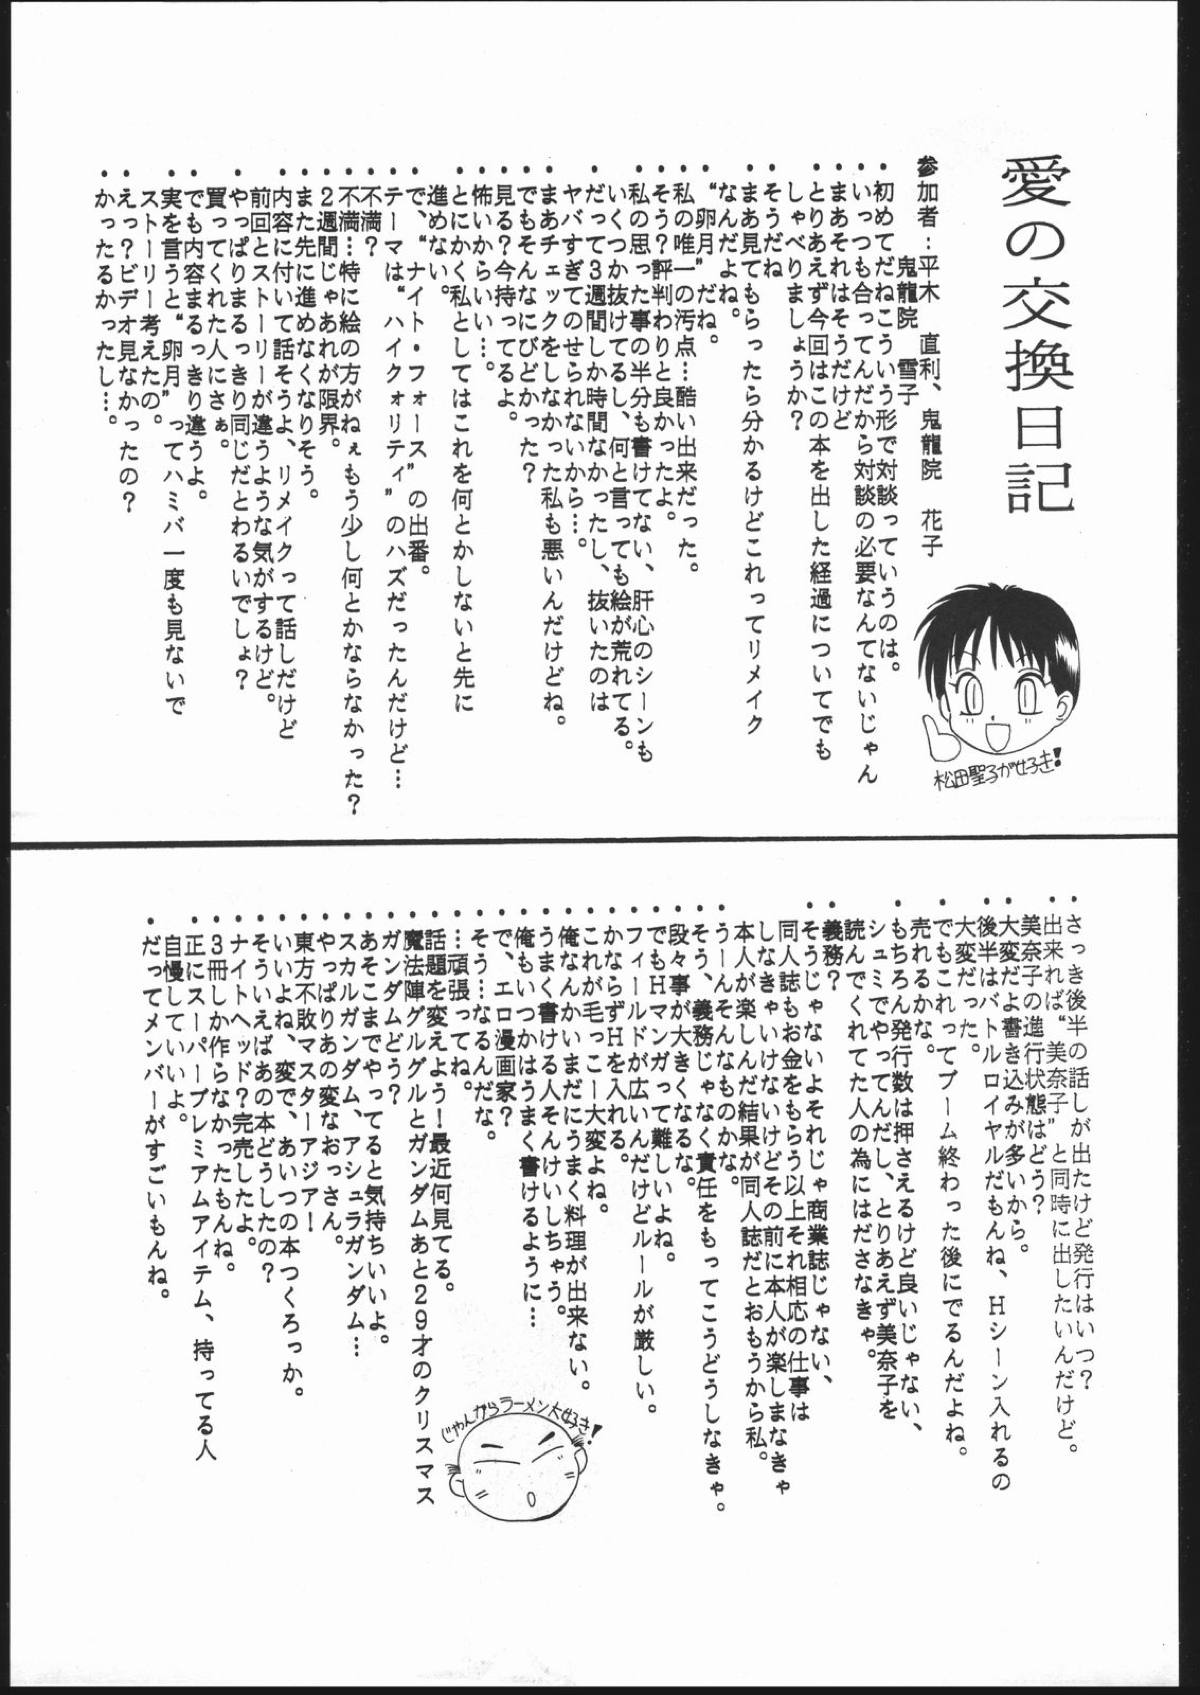 愛の交換日記
参加者：平木　直利、鬼龍院　花子
鬼龍院　雪子
・初めてだねこういう形で対談っていうのは。
・いっつも合ってんだから対談の必要なんてないじゃん
・まあそれはそうだけど
・とりあえず今回はこの本を出した経過についてでも
しゃべりましょうか？
・そうだね
・まあ見てもらったら分かるけどこれってリメイク
なんだよね。
・“卵月”だね。
・私の唯一の汚点…酷い出来だった。
・そう？評判わりと良かったよ。
・私の思った事の半分も書けてない、肝心のシーンも
いくつか抜けてるし、何と言っても絵が荒れてる。
・だって３週間しか時間なかったし、抜いたのは
ヤバすぎてのせられないから…。
・まあチェックをしなかった私も悪いんだけどね。
・でもそんなにひどかった？
・見る？今持ってるよ。
・怖いからいい…。
・とにかく私としてはこれを何とかしないと先に
進めない。
・で、“ナイト・フォース”の出番。
・テーマは“ハイクォリティ”のハズだったんだけど…
・不満？
・不満…特に絵の方がねぇもう少し何とかならなかった？
・２週間じゃあれが限界。
・また先に進めなくなりそう。
・内容に付いて話そうよ、リメイクって話しだけど
前回とストーリーが違うような気がするけど。
・やっぱりまるっきり同じだとわるいでしょ？
買ってくれた人にさぁ。
・でも内容まるっきり違うよ。
・実を言うと“卵月”ってハミバ一度も見ないで
ストーリー考えたの。
・えっ？ビデオ見なかったの？
・かったるかったし…。
松田聖子が好き！
・さっき後半の話しが出たけど発行はいつ？
・出来れば“美奈子”と同時に出したいんだけど。
・美奈子の進行状態はどう？
・大変だよ書き込みが多いから。
・後半はバトルロイヤルだもんね、Ｈシーン入れるの
大変だった。
・でもこれってブーム終わった後にでるんだよね。
売れるかな。
・もちろん発行数は押さえるけど良いじゃない、
シュミでやってんだし、とりあえず美奈子を
読んでくれてた人の為にはださなきゃ。
・義務？
・そうじゃないよそれじゃ商業誌じゃない、
同人誌もお金をもらう以上それ相応の仕事は
しなきゃいけないけどその前に本人が楽しまなきゃ
本人が楽しんだ結果が同人誌だとおもうから私。
・うーんそんなものかな。
・そう、義務じゃなく責任をもってこうどうしなきゃ。
・段々事が大きくなるな。
・でもＨマンガって難しいよね。
・フィールドが広いんだけどルールが厳しい。
・かならずＨを入れる。
・これが毛っこー大変よね。
・俺なんかいまだにうまく料理が出来ない。
・うまく書ける人そんけいしちゃう。
・俺もいつかはうまく書けるように…
・で、エロ漫画家？
・そう…なるんだな。
・…頑張ってね。
・話題を変えよう！最近何見てる。
・魔法陣グルグルとガンダムあと２９才のクリスマス
・ガンダムどう？
・あそこまでやってると気持ちいいよ。
・スカルガンダム、アシュラガンダム…
・やっぱりあの変なおっさん。
・東方不敗マスターアジアー！
・いいよね、変で、あいつの本つくろっか。
・そういえばあの本どうしたの？
・ナイトヘッド？完売したよ。
・３冊しか作らなかったもんね。
・正にスーパープレミアムアイテム、持ってる人
自慢していいよ。
・だってメンバーがすごいもんね。
じゃんがらラーメン大好き！